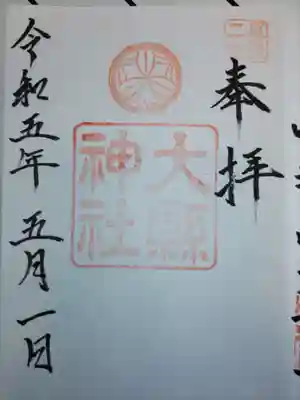 奉拝
大縣神社
令和五年 五月一日